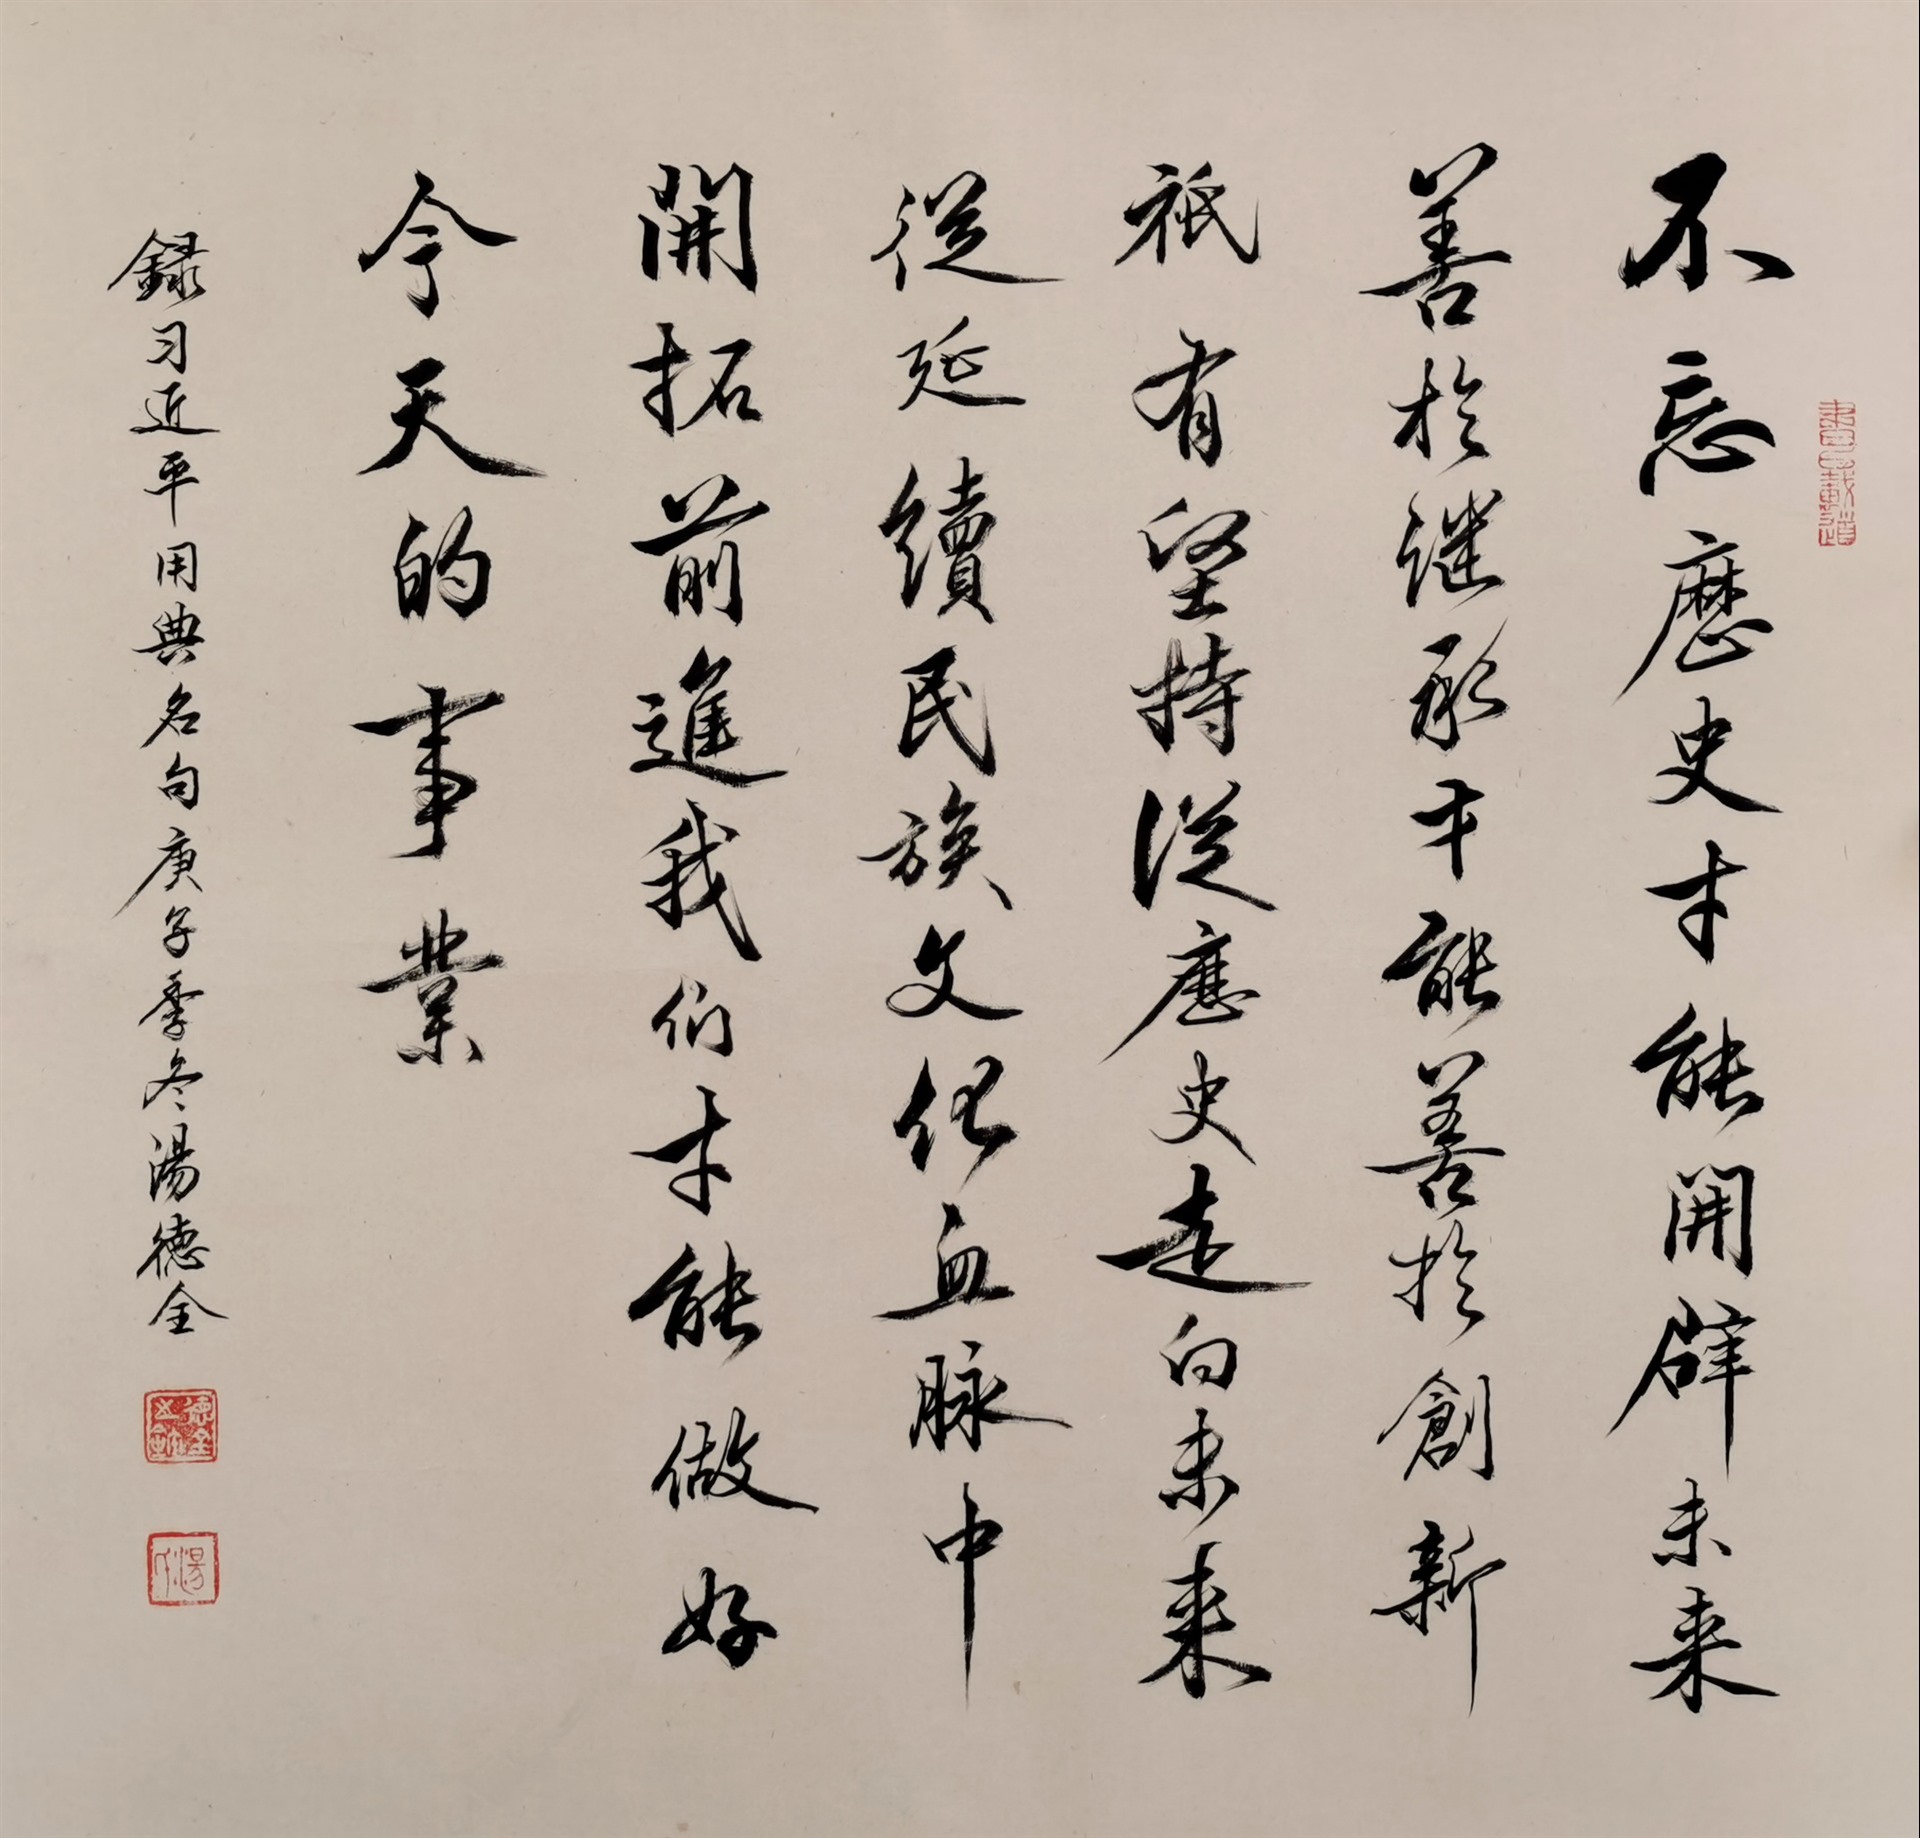 不忘歷史才能開辟未来
善於继承才能善於創新
祇有坚持從歷史走向未来
從延續民族文化血脉中
開拓前進我们才能做好
今天的事業
録习近平用典名句庚子季冬湯德全
書以載道